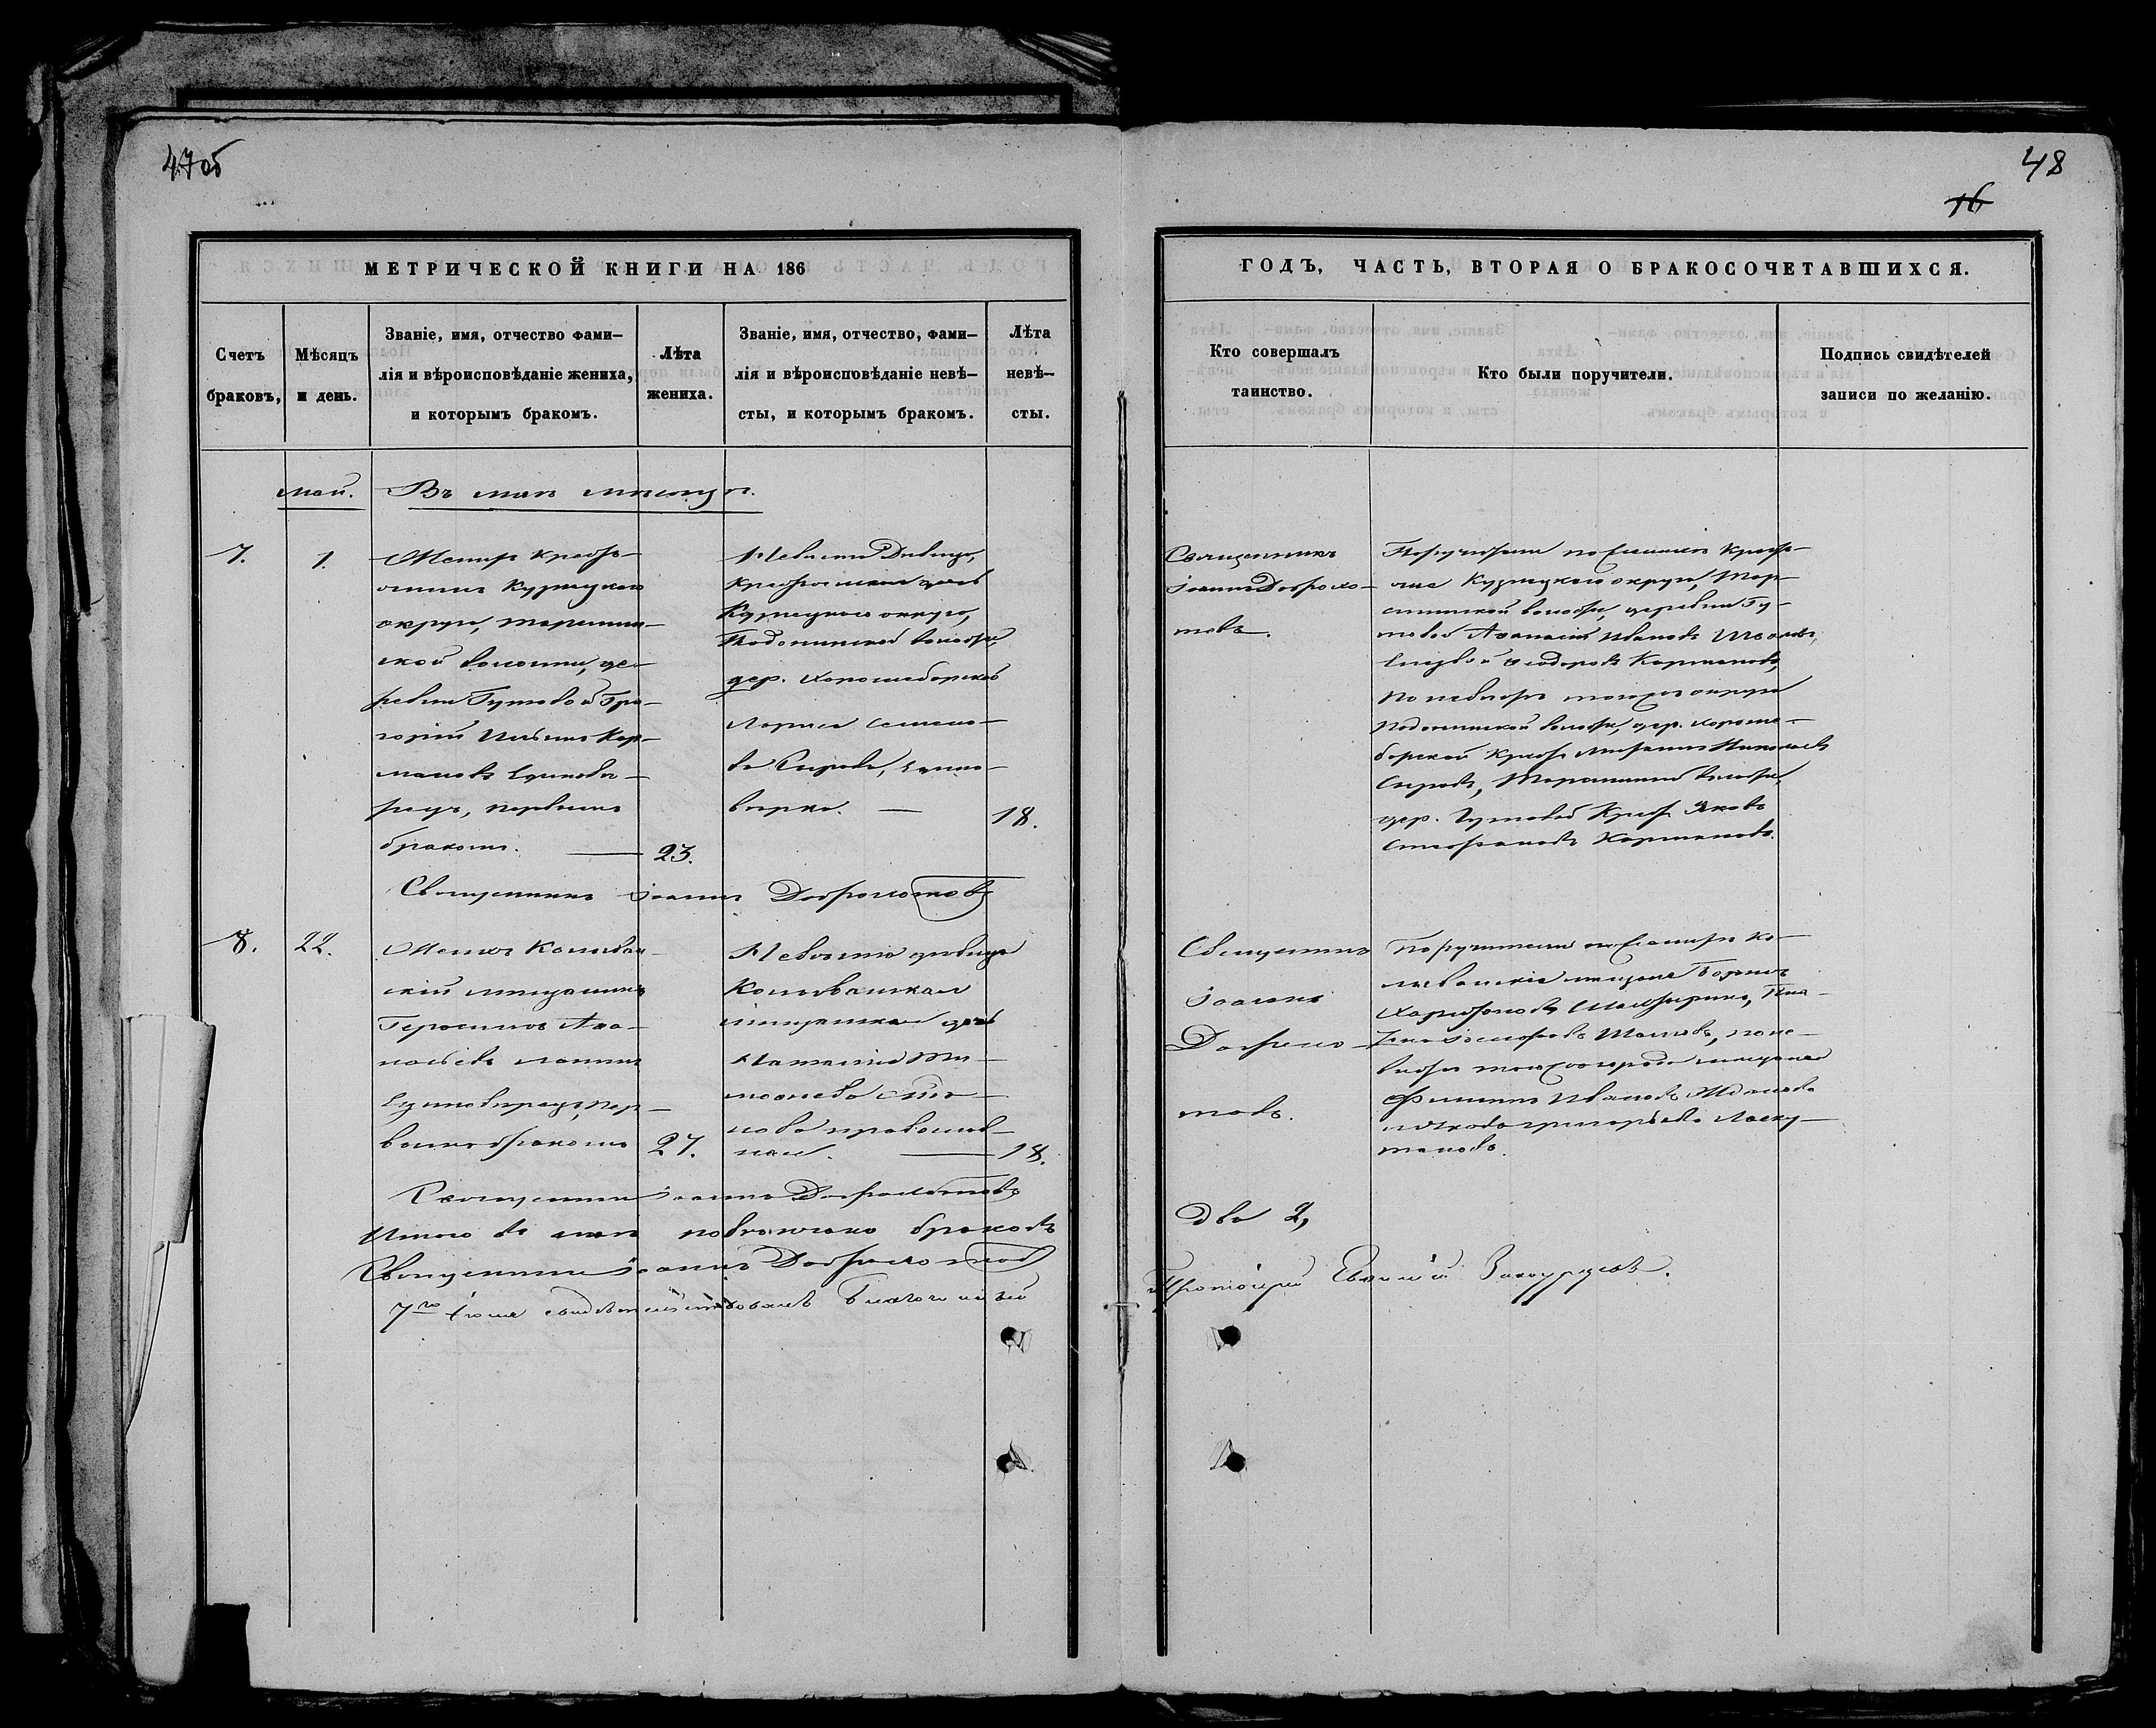 47об
48
16
МЕТРИЧЕСКОЙ КНИГИ НА 186
ГОДЪ, ЧАСТЬ, ВТОРАЯ О БРАКОСОЧЕТАВШИХСЯ.
Счетъ браковъ,
Мѣсяцъ и день.
Званіе, имя, отчество фами-
лія и вѣроисповѣданіе жениха,
и которымъ бракомъ.
Лѣта жениха.
Званіе, имя, отчество, фами-
лія и вѣроисповѣданіе невѣ-
сты, и которымъ бракомъ.
Лѣта невѣ-
сты.
Кто совершалъ
таинство.
Кто были поручители.
Подпись свидѣтелей
записи по желанію.
Май.
Въ маѣ мѣсяцѣ.
7.
1.
Женихъ крестья-
нинъ Кузнецкаго
округа,
ской волости, де-
ревни Гутовой Гри-
горій Ильинъ Кар-
мановъ Единовѣ-
рецъ, первымъ
бракомъ.
23.
Невѣста Дѣвица,
крестьянская дочь
Кузнецкаго округа,
волости,
дер. Хорошеборской
Семено-
ва едино-
вѣрка.
18.
Священникъ
Іоаннъ Доброхо-
товъ.
Поручители по Женихѣ Крестья-
не Кузнецкаго округа,
волости, деревни Гу-
товой Афанасій Ивановъ
Ѳедоровъ Кармановъ,
По невѣстѣ тогоже округа
волости, дер. Хороше-
борской Крест. Николаевъ
волости,
дер. Гутовой Крест. Яковъ
Стефановъ Кармановъ.
Священникъ Іоаннъ Доброхотовъ
8.
22.
Женихъ Колыван-
скій мѣщанинъ
Герасимъ Афа-
насьевъ
Единовѣрецъ, пер-
вымъ бракомъ
27.
Невѣста дѣвица
Колыванская
мѣщанская дочь
Наталія Ти-
моѳеева
православ-
ная.
18.
Священникъ
Іоаннъ
Доброхо-
товъ.
Поручители по Женихѣ Ко-
лыванскіе мѣщане Борисъ
Харитоновъ
по не-
вѣстѣ тогоже города мѣщане
Филиппъ Ивановъ
Григорьевъ Лоску-
тановъ.
Священникъ Іоаннъ Доброхотовъ
Итого въ маѣ повѣнчано браковъ
два 2,
Священникъ Іоаннъ Доброхотовъ
7го Іюня свидѣтельствовалъ Благочинный
Протоіерей Евфимій